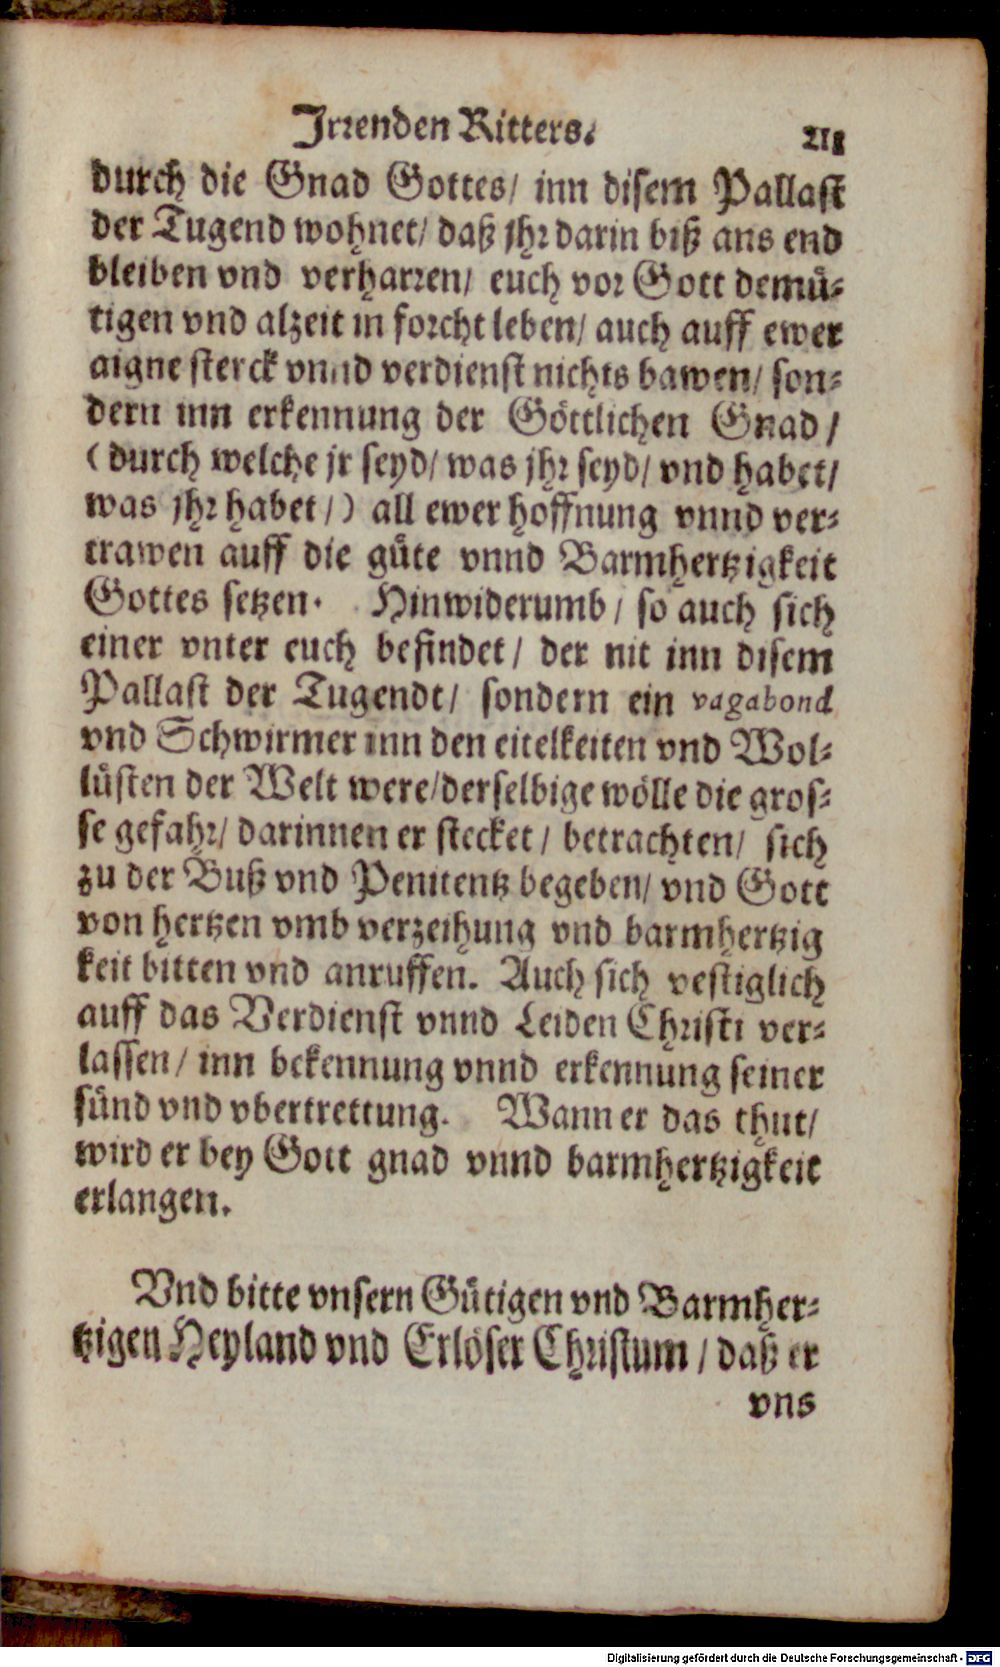 Irrenden Ritters.
218
durch die Gnad Gottes/ inn disem Pallast
der Tugend wohnet/ daß jhr darin biß ans end
bleiben vnd verharren/ euch vor Gott demü-
tigen vnd alzeit in forcht leben/ auch auff ewer
aigne sterck vnnd verdienst nichts bawen/ son-
dern inn erkennung der Göttlichen Gnad/
(durch welche jr seyd/ was jhr seyd/ vnd habet/
was jhr habet/) all ewer hoffnung vnnd ver-
trawen auff die güte vnnd Barmhertzigkeit
Gottes setzen. Hinwiderumb/ so auch sich
einer vnter euch befindet/ der nit inn disem
Pallast der Tugendt/ sondern ein vagabond
vnd Schwirmer inn den eitelkeiten vnd Wol-
lüsten der Welt were/ derselbige wölle die gros-
se gefahr/ darinnen er stecket/ betrachten/ sich
zu der Buß vnd Penitentz begeben/ vnd Gott
von hertzen vmb verzeihung vnd barmhertzig
keit bitten vnd anruffen. Auch sich vestiglich
auff das Verdienst vnnd Leiden Christi ver-
lassen/ inn bekennung vnnd erkennung seiner
sünd vnd vbertrettung. Wann er das thut/
wird er bey Gott gnad vnnd barmhertzigkeit
erlangen.
Vnd bitte vnsern Gütigen vnd Barmher-
tzigen Heyland vnd Erlöser Christum/ daß er
vns
Digitalisierung gefördert durch die Deutsche Forschungsgemeinschaft - DFG